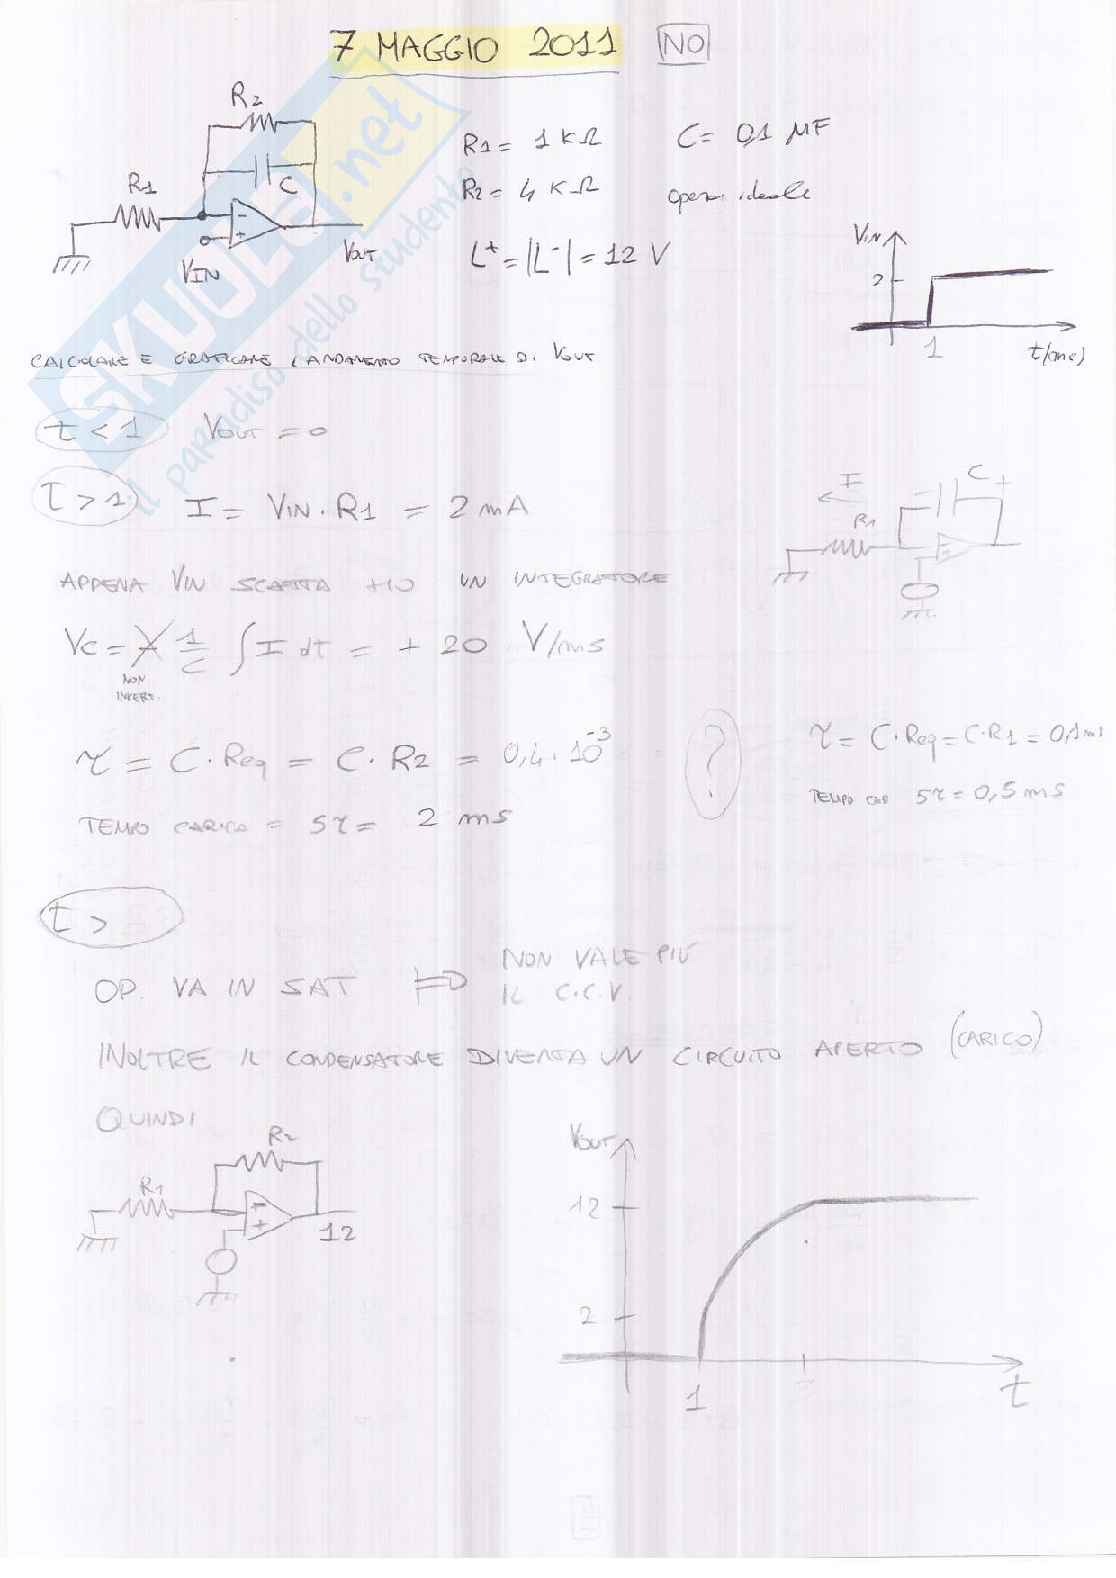 7 MAGGIO 2011 NO
R2
R1 = 1 KΩ C = 0,1 μF
C
R1
R2 = 4 KΩ oper. ideale
VIN
VOUT
L+ = |L-| = 12 V
VIN
2
1
t(ms)
CALCOLARE E GRAFICARE L'ANDAMENTO TEMPORALE DI VOUT
t < 1 VOUT = 0
t > 1 I = VIN · R1 = 2 mA
I
C
+
R1
APPENA VIN SCATTA HO UN INTEGRATORE
VC = 1/C ∫ I dt = + 20 V/ms
NON
INVERT.
τ = C · Req = C · R2 = 0,4 · 10^-3
?
τ = C · Req = C · R1 = 0,1 ms
TEMPO CARICA = 5τ = 2 ms
TEMPO CAR 5τ = 0,5 ms
t >
OP. VA IN SAT ⇒ NON VALE PIÙ
IL C.C.V.
INOLTRE IL CONDENSATORE DIVENTA UN CIRCUITO APERTO (CARICO)
QUINDI
R2
R1
12
VOUT
12
2
1
t
SKUOLA.net
il paradiso dello studente